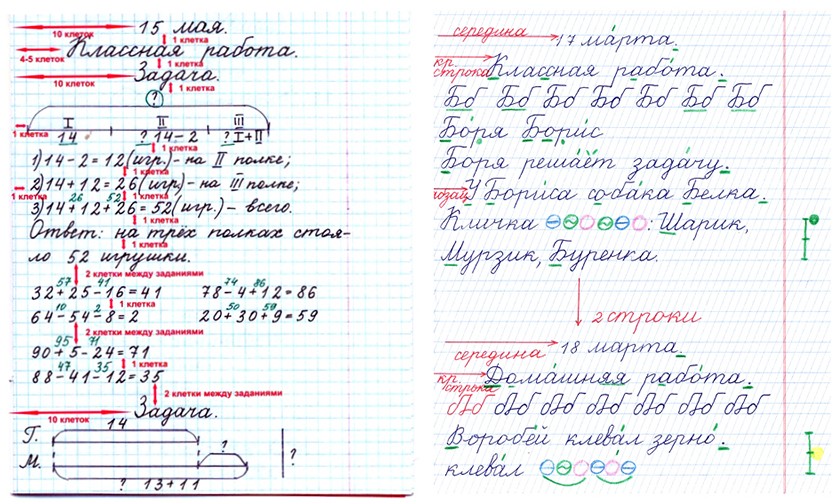 10 клеток 15 мая.
1 клетка
4-5 клеток Классная работа.
1 клетка
10 клеток Задача.
1 клетка
?
I II III
1 клетка 14 ? 14-2 ? I+II
1 клетка
1) 14-2=12 (игр.)- на II полке;
1 клетка
2) 14+12=26 (игр.)- на III полке;
1 клетка 1 клетка
26 52
3) 14+12+26=52 (игр.)- всего.
1 клетка
Ответ: на трёх полках стоя-
1 клетка
ло 52 игрушки.
2 клетки между заданиями
57 41 74 86
32+25-16=41 78-4+12=86
1 клетка
10 2 50 59
64-54-8=2 20+30+9=59
2 клетки между заданиями
95 71
90+5-24=71
1 клетка
47 35
88-41-12=35
2 клетки между заданиями
10 клеток Задача.
14
Г.
?
М. ?
? 13+11
середина 17 марта.
кр. строка Классная работа.
Бб Бб Бб Бб Бб Бб Бб
Боря Борис
Боря решает задачу.
абзац У Бориса собака Белка.
Кличка : Шарик,
Мурзик, Буренка.
2 строки
середина 18 марта.
кр. строка Домашняя работа.
Воробей клевал зерно.
клевал